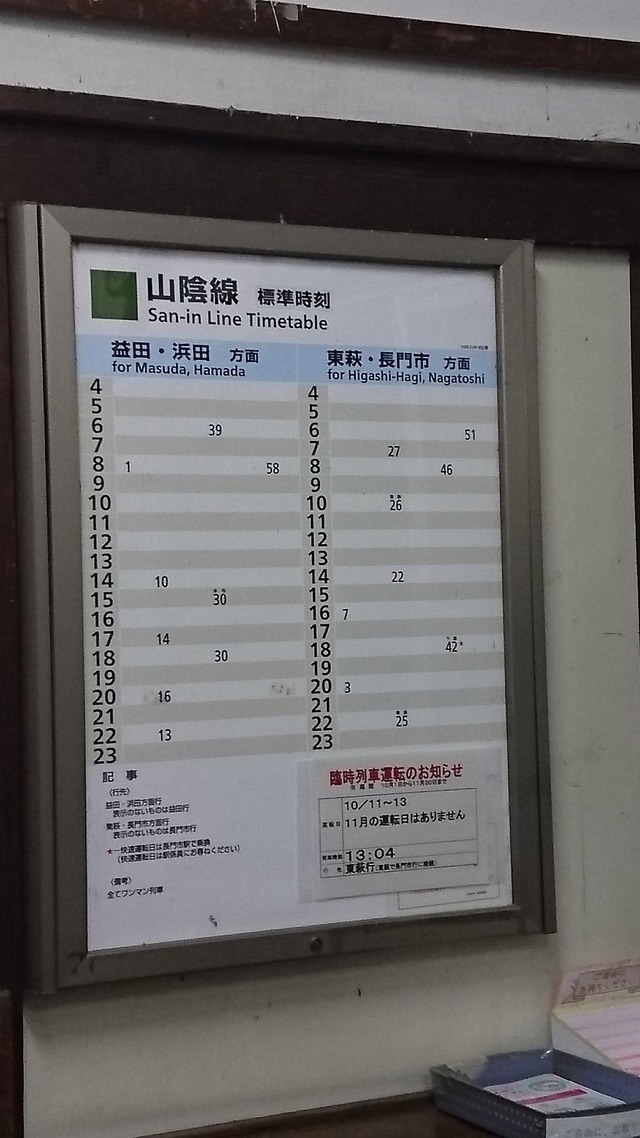 山陰線 標準時刻
San-in Line Timetable
益田・浜田 方面
for Masuda, Hamada
4
5
6 39
7
8 1 58
9
10
11
12
13
14 10
15 30
16
17 14
18 30
19
20 16
21
22 13
23
東萩・長門市 方面
for Higashi-Hagi, Nagatoshi
4
5
6 51
7 27
8 46
9
10 東萩 26
11
12
13
14 22
15
16 7
17
18 42*
19
20 3
21
22 東萩 25
23
記 事
〈行先〉
益田・浜田方面行
表示のないものは益田行
東萩・長門市方面行
表示のないものは長門市行
★…快速運転日は長門市駅で乗換
(快速運転日は駅係員にお尋ねください)
〈備考〉
全てワンマン列車
臨時列車運転のお知らせ
10月1日から11月30日まで
運転日
10/11〜13
11月の運転日はありません
13:04
行先 東萩行(東萩で長門市行に接続)